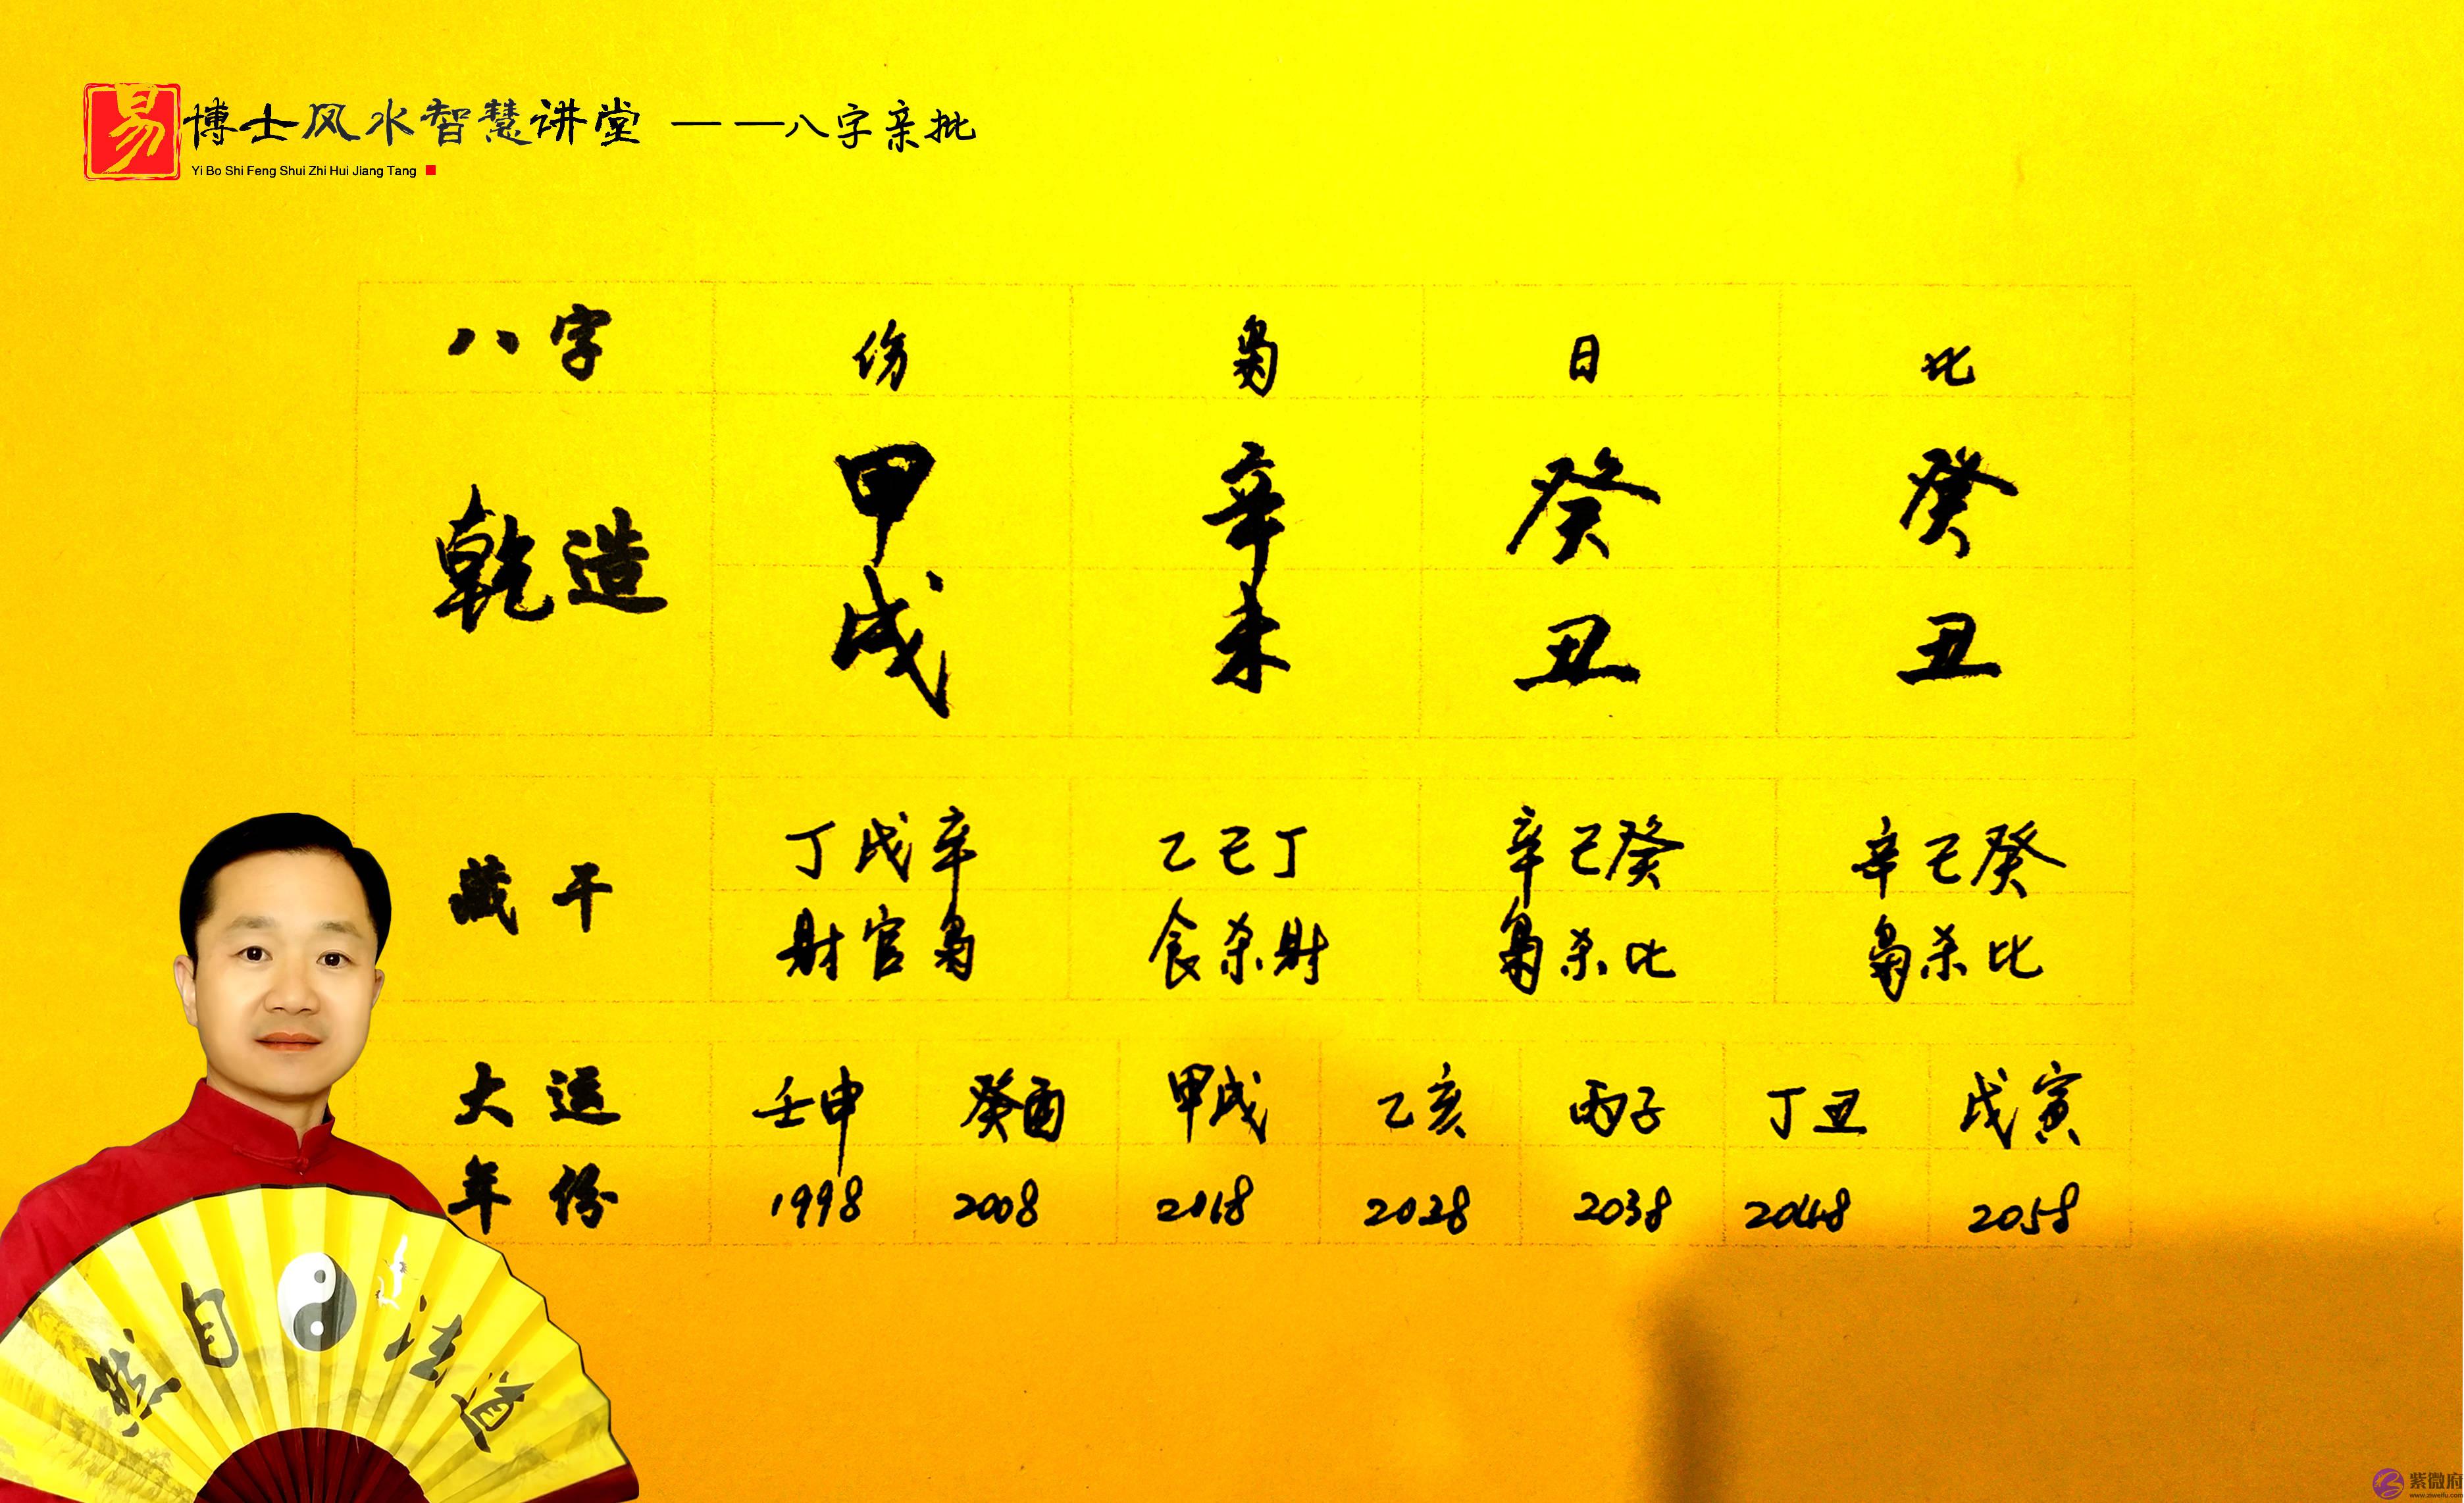 易博士风水智慧讲堂 ——八字亲批
Yi Bo Shi Feng Shui Zhi Hui Jiang Tang
八字 伤 枭 日 比
乾造 甲 辛 癸 癸
戌 未 丑 丑
藏干 丁戊辛 乙己丁 辛己癸 辛己癸
财官枭 食杀财 枭杀比 枭杀比
大运 壬申 癸酉 甲戌 乙亥 丙子 丁丑 戊寅
年份 1998 2008 2018 2028 2038 2048 2058
然自法道
紫微府
www.ziweifu.com